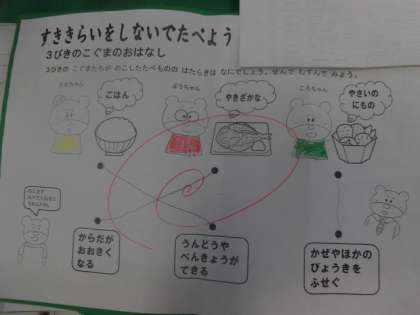 すききらいをしないでたべよう
3びきのこぐまのおはなし
3びきの こぐまたちが のこしたたべものの はたらきは なにでしょう。せんで むすんで みよう。
ごはん
ぷうちゃん
やきざかな
ころちゃん
やさいの
にもの
からだが
おおきく
なる
うんどうや
べんきょうが
できる
かぜやほかの
びょうきを
ふせぐ